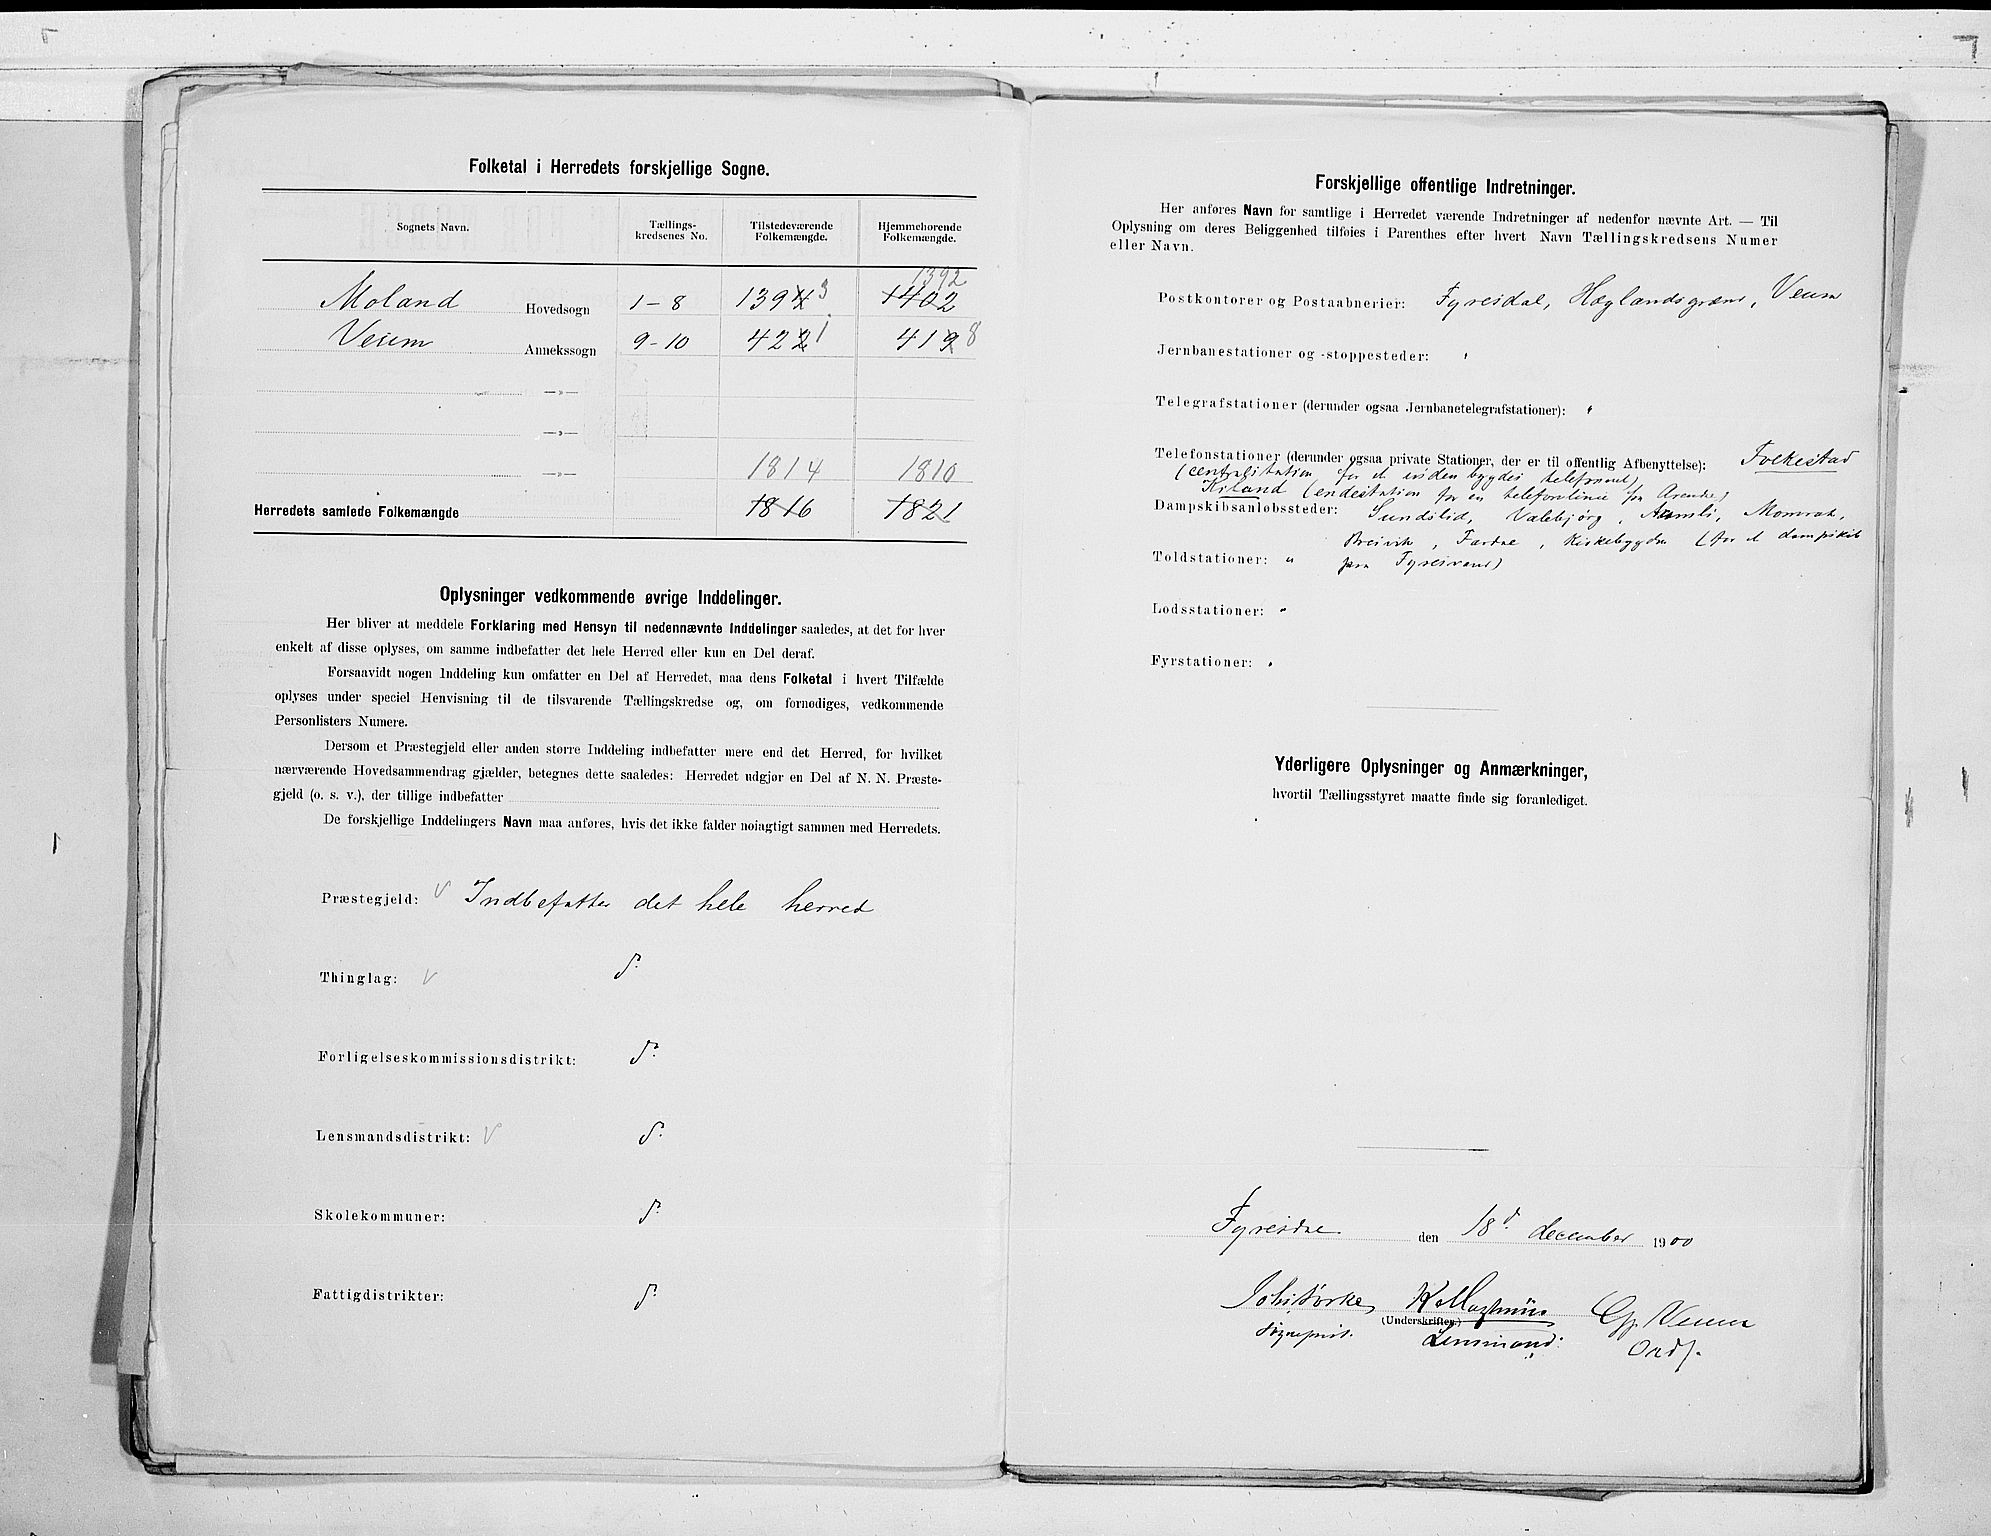 Folketal i Herredets forskjellige Sogne.
Sognets Navn. Tællings-kredsenes No. Tilstedeværende Folkemængde. Hjemmehørende Folkemængde.
1392
Moland Hovedsogn 1-8 1394 3 1402
Veum Annekssogn 9-10 422 1 419 8
—»—
—»—
—»— 1814 1810
Herredets samlede Folkemængde 1816 1821
Oplysninger vedkommende øvrige Inddelinger.
Her bliver at meddele Forklaring med Hensyn til nedennævnte Inddelinger saaledes, at det for hver
enkelt af disse oplyses, om samme indbefatter det hele Herred eller kun en Del deraf.
Forsaavidt nogen Inddeling kun omfatter en Del af Herredet, maa dens Folketal i hvert Tilfælde
oplyses under speciel Henvisning til de tilsvarende Tællingskredse og, om fornødiges, vedkommende
Personlisters Numere.
Dersom et Præstegjeld eller anden større Inddeling indbefatter mere end det Herred, for hvilket
nærværende Hovedsammendrag gjælder, betegnes dette saaledes: Herredet udgjør en Del af N. N. Præste-
gjeld (o. s. v.), der tillige indbefatter
De forskjellige Inddelingers Navn maa anføres, hvis det ikke falder nøiagtigt sammen med Herredets.
Præstegjeld: Indbefatter det hele herred
Thinglag:
Forligelseskommissionsdistrikt:
Lensmandsdistrikt:
Skolekommuner:
Fattigdistrikter:
Forskjellige offentlige Indretninger.
Her anføres Navn for samtlige i Herredet værende Indretninger af nedenfor nævnte Art. — Til
Oplysning om deres Beliggenhed tilføies i Parenthes efter hvert Navn Tællingskredsens Numer
eller Navn.
Postkontorer og Postaabnerier: Fyresdal, Høglandsgræns, Veum
Jernbanestationer og -stoppesteder: "
Telegrafstationer (derunder ogsaa Jernbanetelegrafstationer): "
Telefonstationer (derunder ogsaa private Stationer, der er til offentlig Afbenyttelse): Folkestad
(centralstation for et inden bygdes telefonnet)
Kiland (endestation for en telefonlinie fra Arendal)
Dampskibsanløbssteder: Sundslid, Valebjørg, Aamli, Momrak,
Breivik, Fardal, Kirkebygden (for et dampskib
Toldstationer: " paa Fyresvand)
Lodsstationer: "
Fyrstationer: "
Yderligere Oplysninger og Anmærkninger,
hvortil Tællingsstyret maatte finde sig foranlediget.
Fyresdal den 18d december 1900
(Underskrifter.) Veum
Sogneprest. Lensmand. Ordf.